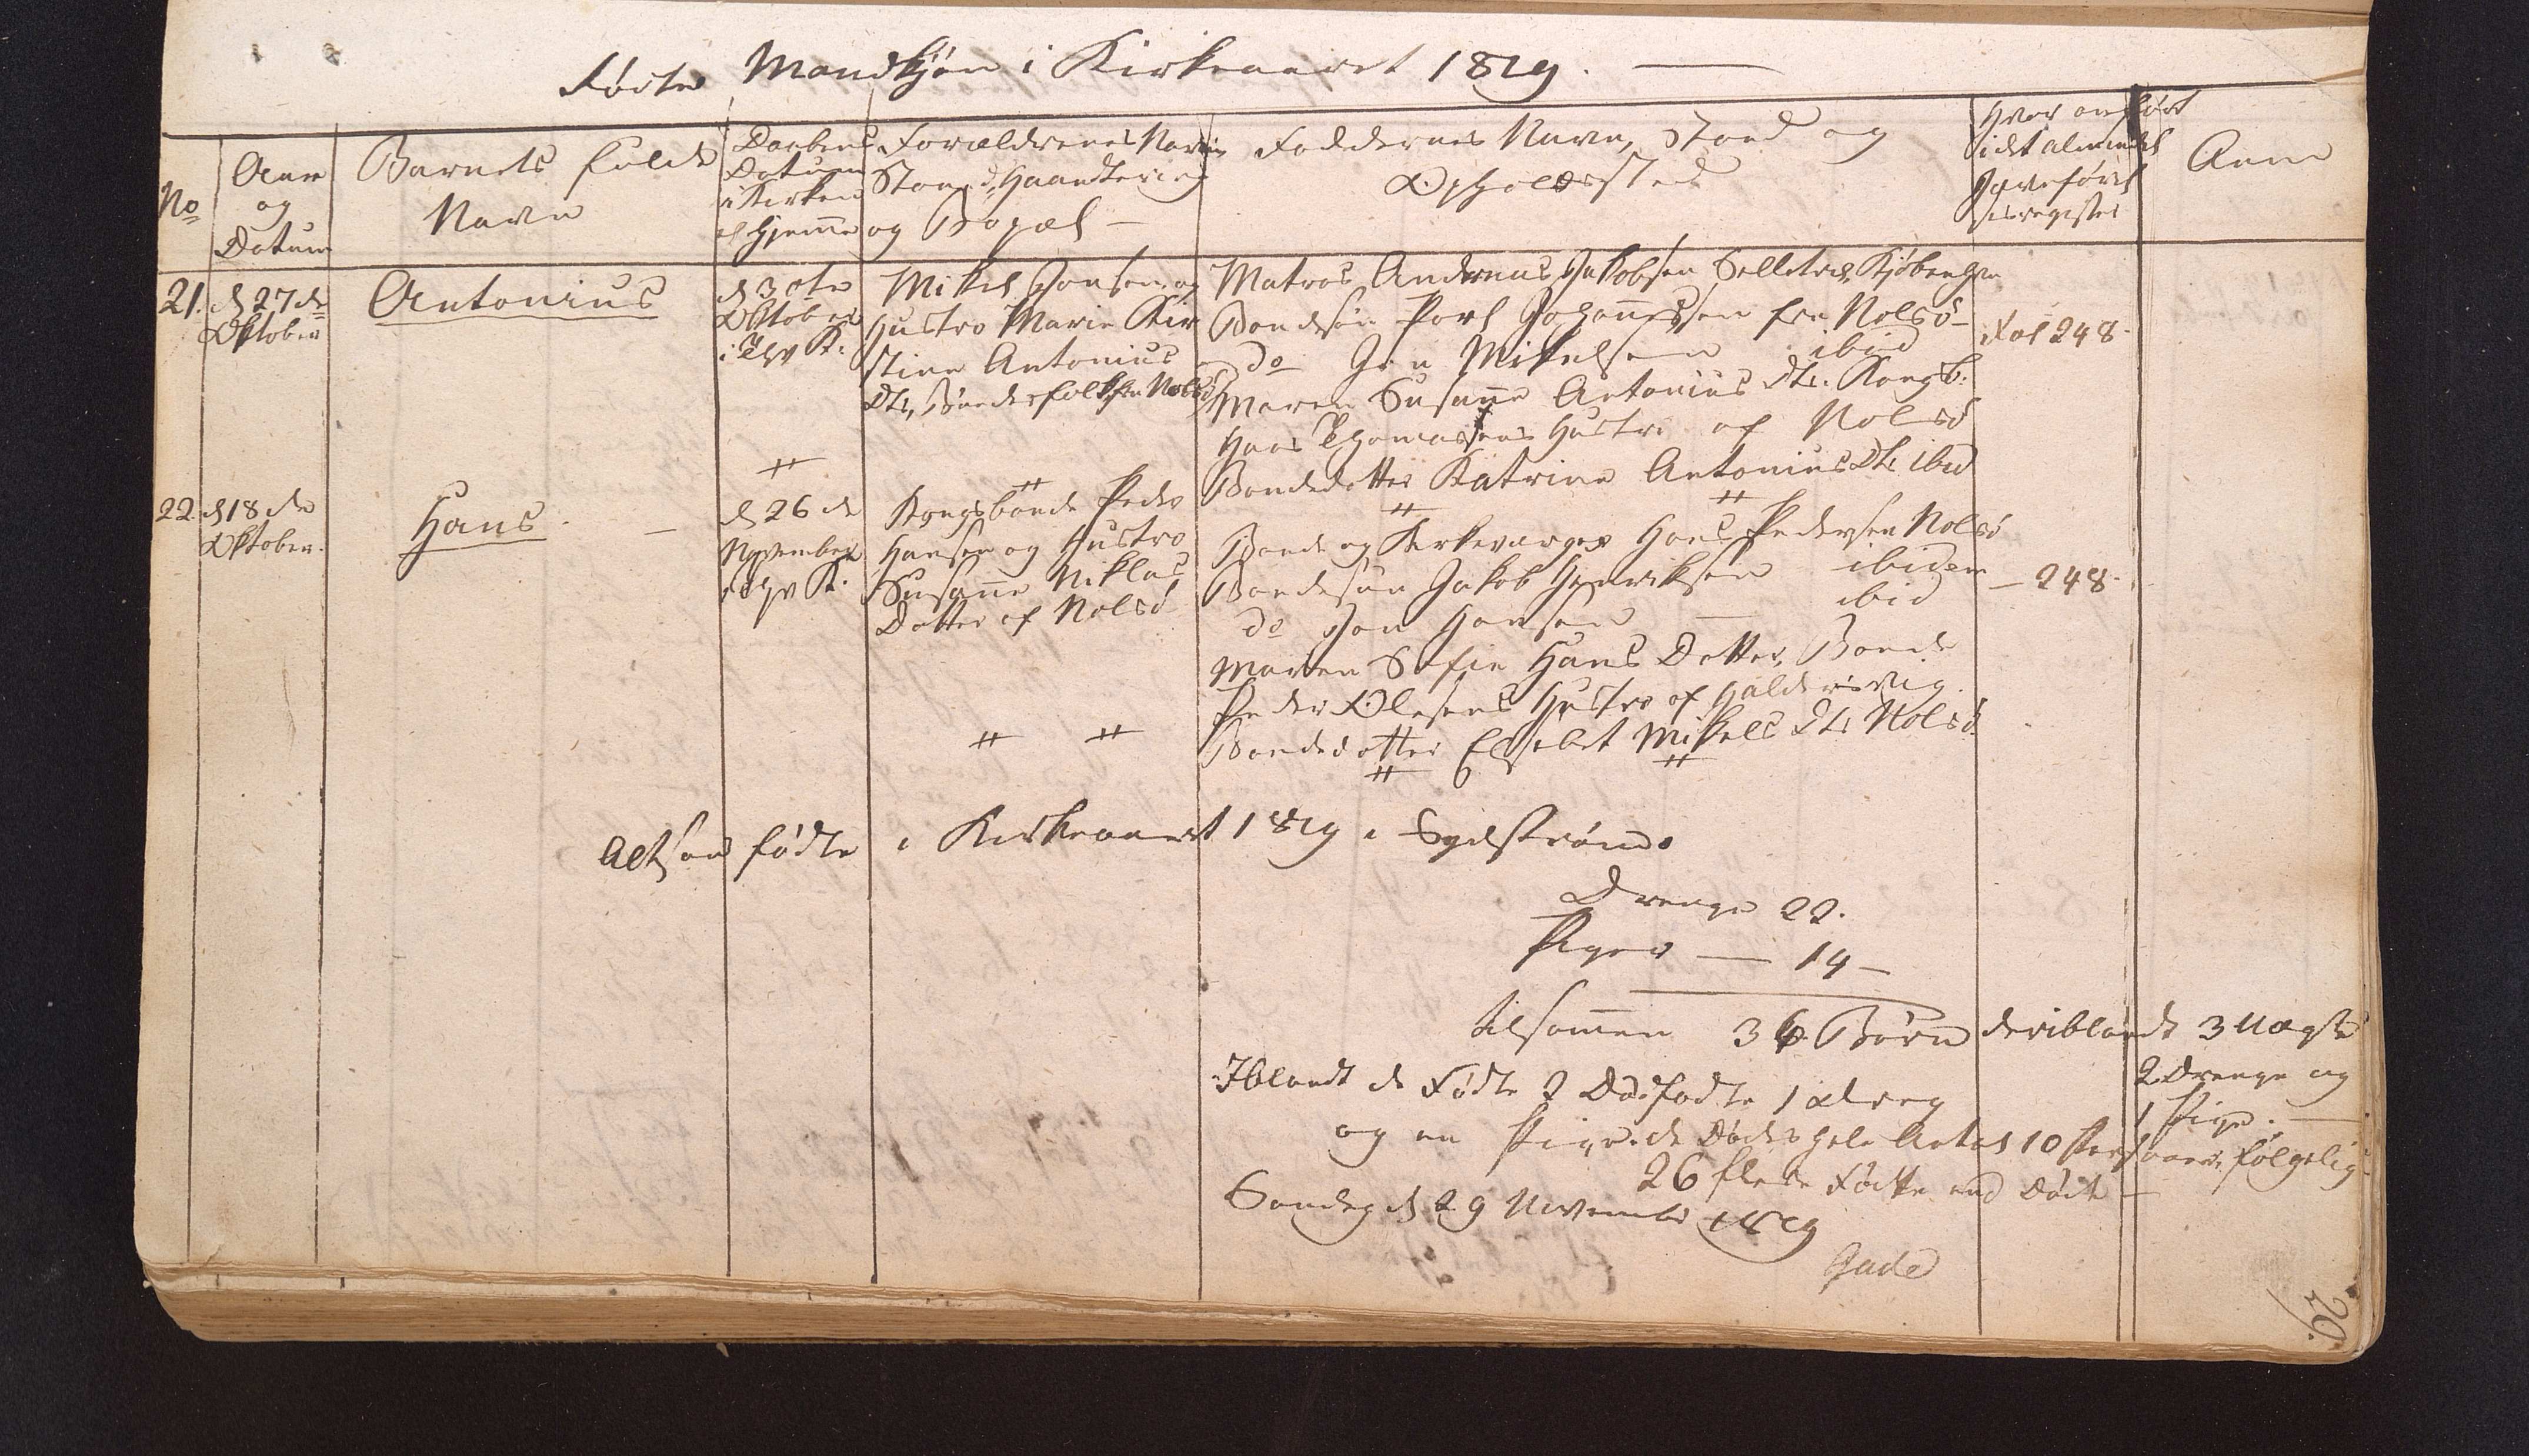 Fødte Mandkjøn i Kirkeaaret 1829.
No
Aar
og
Datum
Barnets fulde
Navn
Daabens
Datum
i Kirken
el hjemme
Forældrenes Navn
Stand, Haandtering
og Bopæl
Faddernes Navn, Stand og
Opholdssted
Hvor anført
i det almindel
Jævnførel
sesregister
Anm
21.
d 27de
Oktober
Antonius
d 30te
Oktober
i Thv K.
Mikel Joensen og
Hustro Marie Kir
stine Antonius
Dtr, Bøndesfolk fra Nolsø
Matros Andreas Jakobsen Kjøbenhavn
Bondesøn Poul Johannessen fra Nolsø
do Jon Mikelsen ibid
Maren Susanne Antonius Dtr. Kongsb:
Hans Thomassens Hustro af Nolsø
Bondedatter Katrine Antonius Dtr ibid
Fol 248
22.
d 18de
Oktober.
Hans
d 26de
November
i Thv K.
Kongsbonde Peder
Hansen og Hustro
Susanne Niklas
Datter af Nolsø
Bonde og Kirkeværger Hans Pedersen Nolsø
Bondesøn Jakob Henriksen ibidem
do Jon Hansen ibid
Maren Sofie Hans Datter, Bonde
Peder Olesens Hustro af Haldersvig
Bondedatter Elsebet Mikels Dtr Nolsø
— 248
Altsaa fødte i Kirkeaaret 1829 i Sydstrømø
Drenge 22.
Piger — 14 —
tilsammen 36 Børn deriblandt 3 Uægte
2 Drenge og
1 Pige.
Iblandt de Fødte 2 Dødfødte 1 Dreng
og en Pige. de Dødes hele Antal 10 Personer, følgelig
26 flere Fødte end Døde —
Søndag d 29 November 1829
Gad
20.